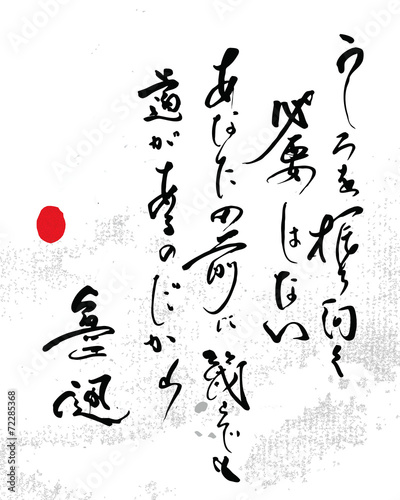 うしろを振り向く
必要はない
あなたの前に幾らでも
道があるのだから
魯迅
Adobe Stock | #72285368